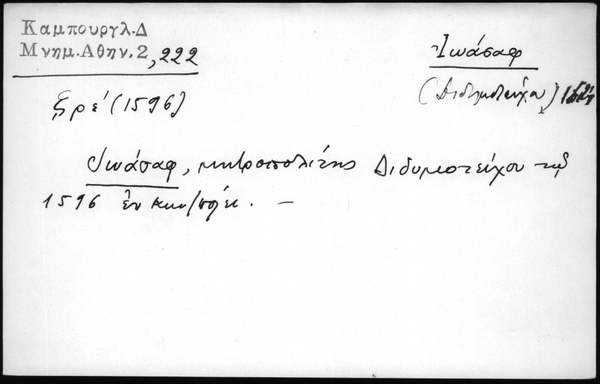 Καμπουργλ.Δ
Μνημ.Αθην.2,222
Ἰωάσαφ
(Διδυμοτείχου)
ζρέ (1596)
Ἰωάσαφ, μητροπολίτης Διδυμοτείχου τῷ
1596 ἐν Κων/πόλει. —